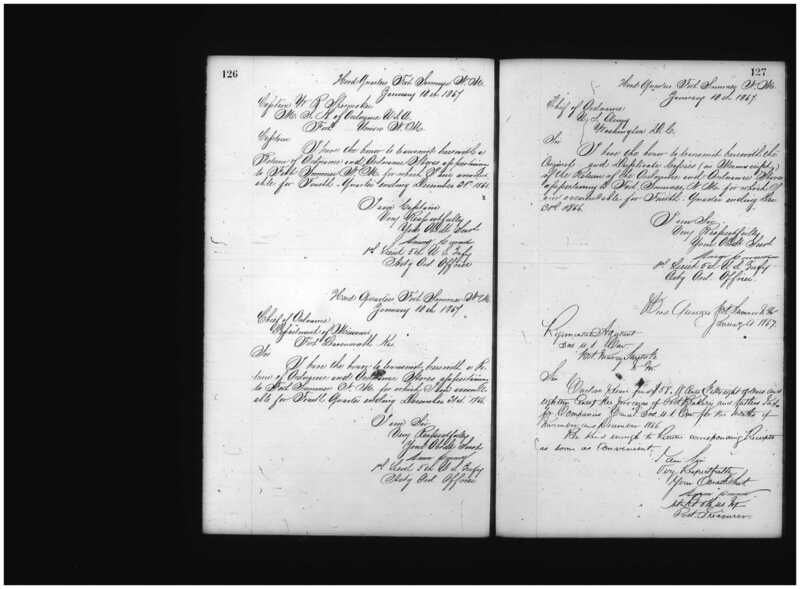 126
Head Quarters Fort Sumner N. M.
January 10th 1867
Captain W. R. Shoemaker
M. S. K. of Ordnance U.S.A.
Fort Union N. M.
Captain
I have the honor to transmit herewith a
Return of Ordnance and Ordnance Stores appertaining
to Fort Sumner N. M. for which I am account-
able for Fourth Quarter ending December 31st 1866.
I am Captain
Very Respectfully
Your Obdt Servt
1st Lieut 5th U. S. Infy
Actg Ord Officer
Head Quarters Fort Sumner N. M.
January 10th 1867
Chief of Ordnance
Department of Missouri
Fort Leavenworth Kas
Sir
I have the honor to transmit herewith a Re-
turn of Ordnance and Ordnance Stores appertaining
to Fort Sumner N. M. for which I am account-
able for Fourth Quarter ending December 31st 1866
I am Sir
Very Respectfully
Your Obdt Servt
1st Lieut 5th U. S. Infy
Actg Ord Officer
127
Head Quarters Fort Sumner N. M.
January 10th 1867.
Chief of Ordnance
U. S. Army
Washington D. C.
Sir
I have the honor to transmit herewith the
Original and Duplicate copies
of the Return of the Ordnance and Ordnance Stores
appertaining to Fort Sumner N. M. for which I
am accountable for Fourth Quarter ending Dec
31st 1866.
I am Sir
Very Respectfully
Your Obdt Servt
1st Lieut 5th U. S. Infy
Actg Ord Officer
Head Quarters Fort Sumner N. M.
January 11 1867.
Regimental Adjutant
Cav
Sir
Enclosed please find
eighty cents the proceeds of Post Bakery and
for Companies Cav for the months of
November and December 1866
Be kind enough to corresponding Receipts
as soon as convenient.
I am Sir
Very Respectfully
Your Obedt Servt
Post Treasurer